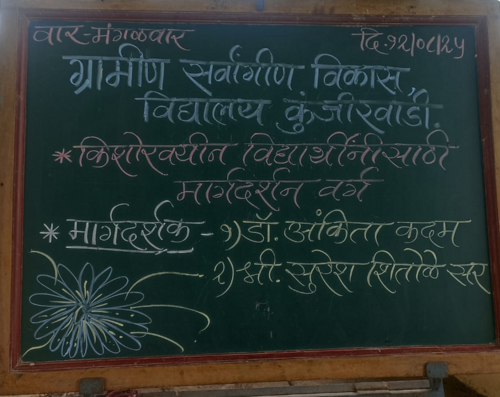 वार-मंगळवार
दि.१२/०८/२५
ग्रामीण सर्वांगीण विकास,
विद्यालय कुंजीरवाडी.
* किशोरवयीन विद्यार्थीनींसाठी
मार्गदर्शन वर्ग
* मार्गदर्शक - १) डॉ. अंकिता कदम
२) श्री. सुरेश शितोळे सर